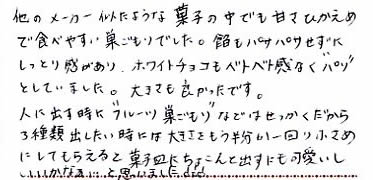 他のメーカー似たような菓子の中でも甘さひかえめ
で食べやすい巣ごもりでした。餡もパサパサせずに
しっとり感があり、ホワイトチョコもベトベト感なく"パリッ"
としていました。大きさも良かったです。
人に出す時に"フルーツ巣ごもり"などはせっかくだから
3種類出したい時には大きさをもう半分か一回り小さめ
にしてもらえると菓子皿にちょこんと出すにも可愛いし
いいかなぁ…と思いました